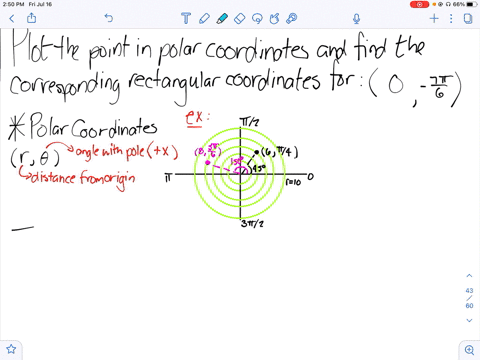 2:50 PM Fri Jul 16
66%
Plot the point in polar coordinates and find the
corresponding rectangular coordinates for: (0, -7π/6)
* Polar Coordinates
ex:
π/2
(r, θ) angle with pole (+x)
distance from origin
(6, π/4)
150°
45°
π
r=10
0
3π/2
43
/
60